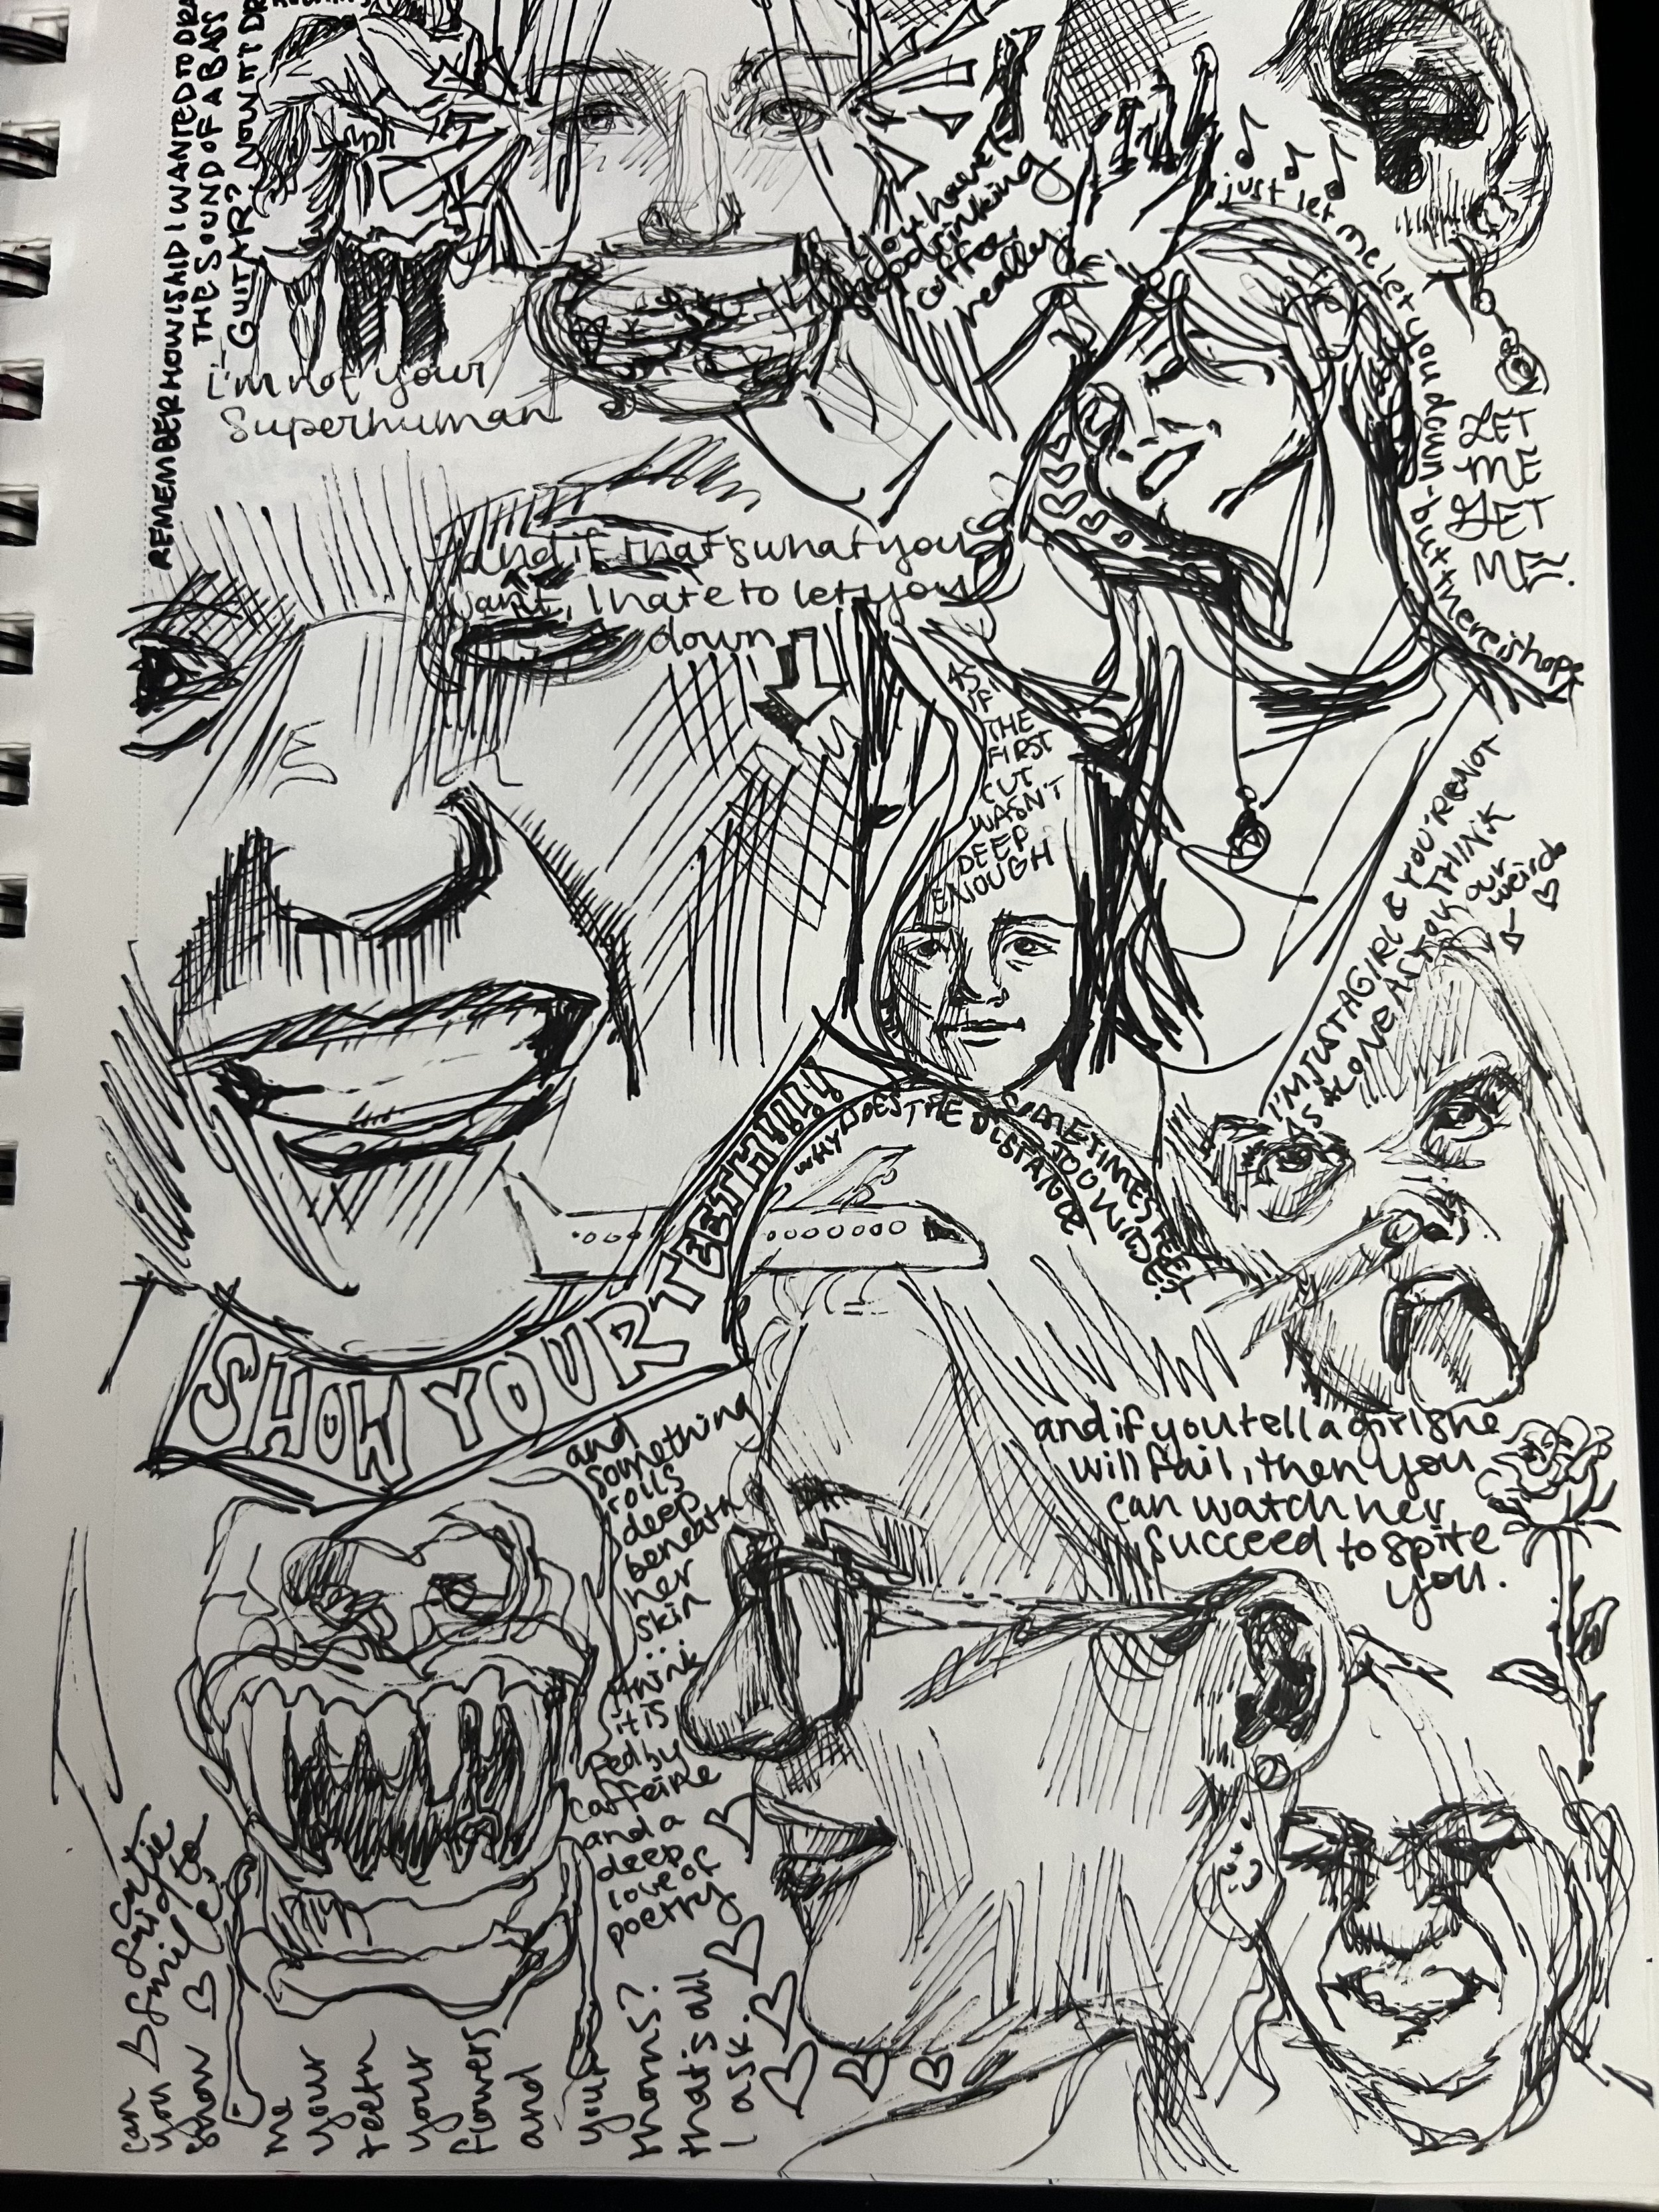 REMEMBER HOW I SAID I WANTED TO DRAW
THE SOUND OF A BASS
GUITAR?
i'm not your
superhuman
you haven't
stopped drinking
coffee,
really
just let me let you down - but there is hope
LET
ME
GET
ME!
and if that's what you
want, I hate to let you
down
AS
IF
THE
FIRST
CUT
WASN'T
DEEP
ENOUGH
I'M JUST A GIRL & YOU'RE NOT
AS ALONE AS YOU THINK
our
weirdo
WHY DOES THE DISTANCE
SOMETIMES FEEL
TOO WIDE?
SHOW YOUR TEETH
and
something
rolls
deep
beneath
her
skin
i think
it is
fed by
caffeine
and a
deep
love of
poetry
and if you tell a girl she
will fail, then you
can watch her
succeed to spite
you.
can
you
show
me
your
teeth
your
flowers
and
your
thorns?
that's all
I ask.